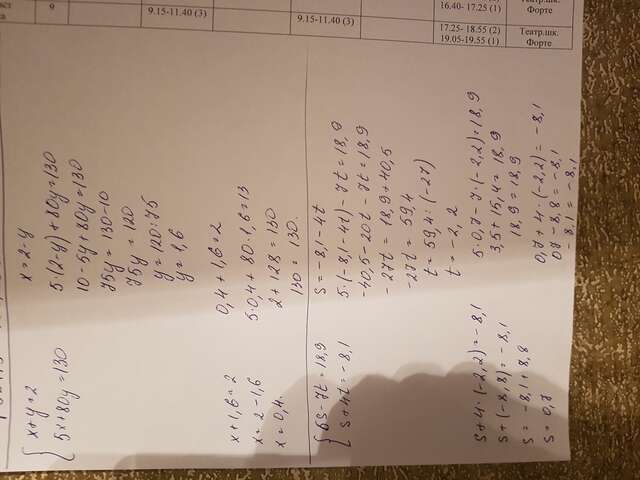 x+y=2
5x+80y=130
x=2-y
5·(2-y)+80y=130
10-5y+80y=130
75y=130-10
75y=120
y=120:75
y=1,6
x+1,6=2
x=2-1,6
x=0,4.
0,4+1,6=2
5·0,4+80·1,6=13
2+128=130
130=130.
5s-7t=18,9
s+4t=-8,1
s=-8,1-4t
5·(-8,1-4t)-7t=18,9
-40,5-20t-7t=18,9
-27t=18,9+40,5
-27t=59,4
t=59,4:(-27)
t=-2,2
s+4·(-2,2)=-8,1
s+(-8,8)=-8,1
s=-8,1+8,8
s=0,7
5·0,7-7·(-2,2)=18,9
3,5+15,4=18,9
18,9=18,9
0,7+4·(-2,2)=-8,1
07-8,8=-8,1
-8,1=-8,1
9
9.15-11.40 (3)
9.15-11.40 (3)
16.40-17.25 (1)
17.25-18.55 (2)
19.05-19.55 (1)
Театр.шк.
Форте
Театр.шк.
Форте